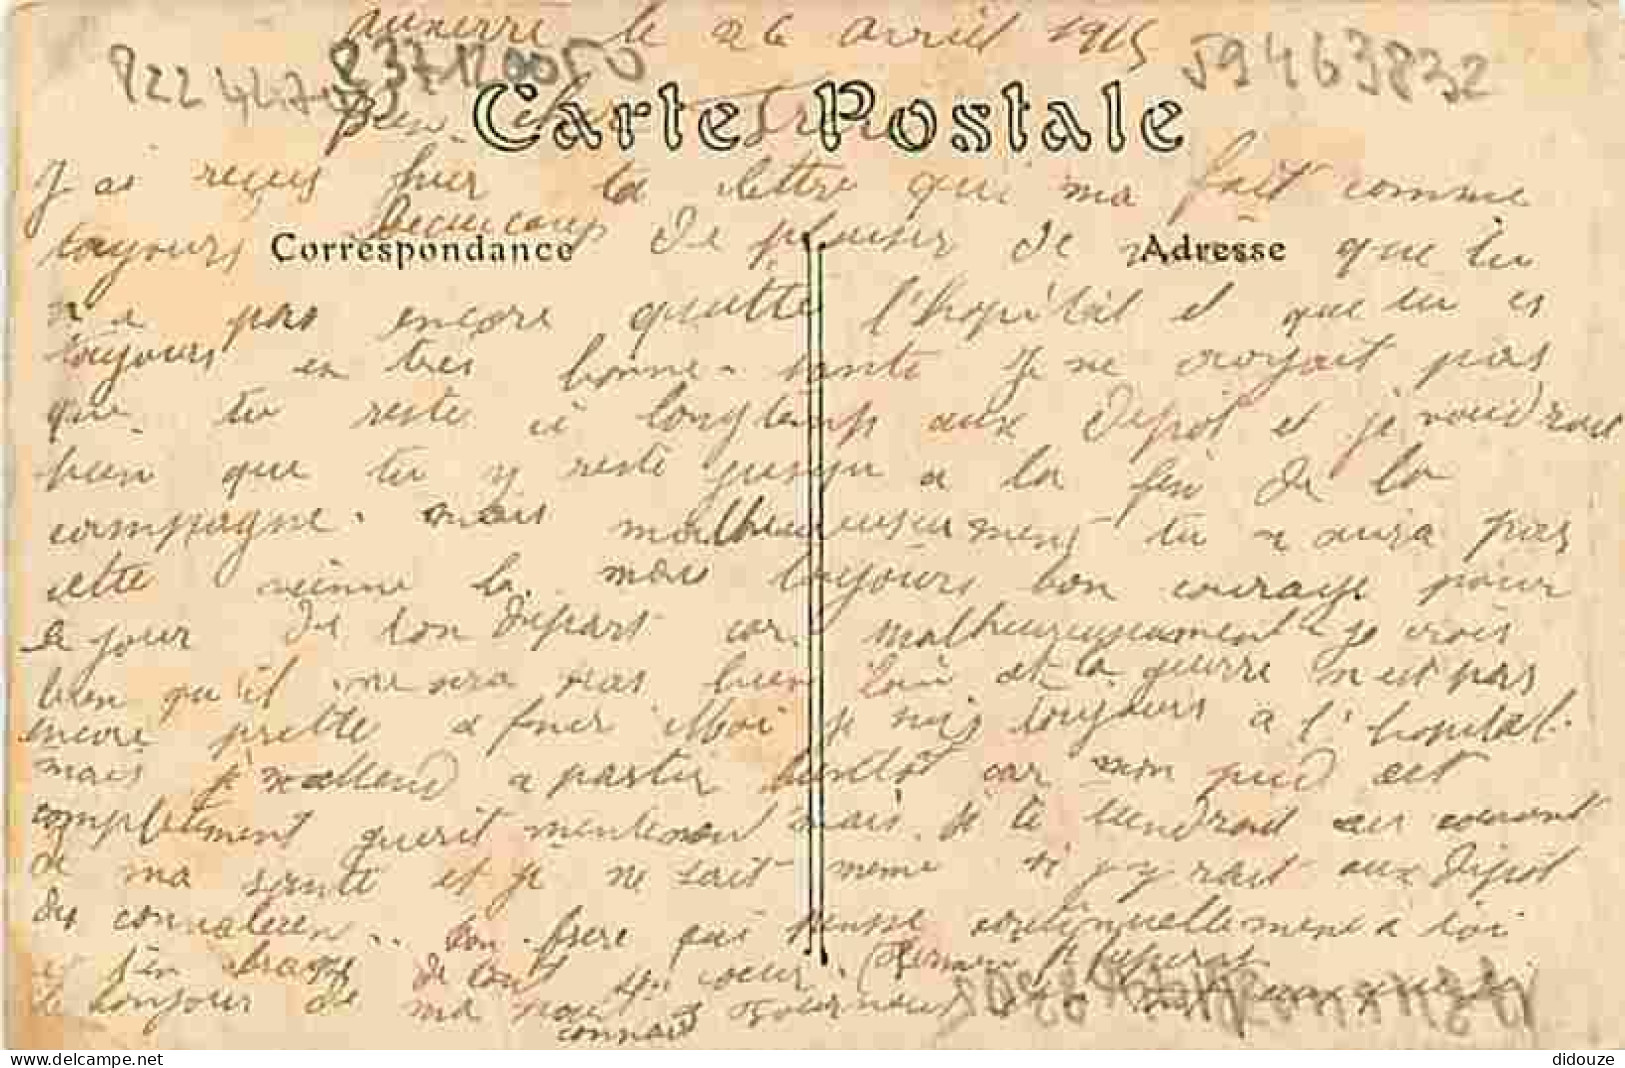 Auxerre le 26 avril 1915
59463832
822 447
bien cher Frere
Carte Postale
J ai reçus hier ta lettre qui ma fait comme
toujours beaucoup de plaisir de que tu
Correspondance
Adresse
n a pas encore quitté l'hopital et que tu es
toujours en tres bonne santé Je ne croyait pas
que tu reste si longtemp aux Depot et je voudrait
bien que tu y reste jusqu a la fin de la
campagne. mais malheureusement tu n aura pas
cette mais toujours bon courage pour
le jour de ton depart car malheureusement je crois
bien qu'il ne sera pas bien loin et la guerre n est pas
encore prette a finir Moi je suis toujours a l'hopital.
mais je m attend a partir bientot car mon pied est
completement guerit mentenant mais je te tiendrait au courant
de ma santé et je ne sait meme si j y rait aux Depot
des convalecen.. ton frere qui pense continuellement a toi
et t'en brasse de tout son coeur.
le bonjour de ma part
connais